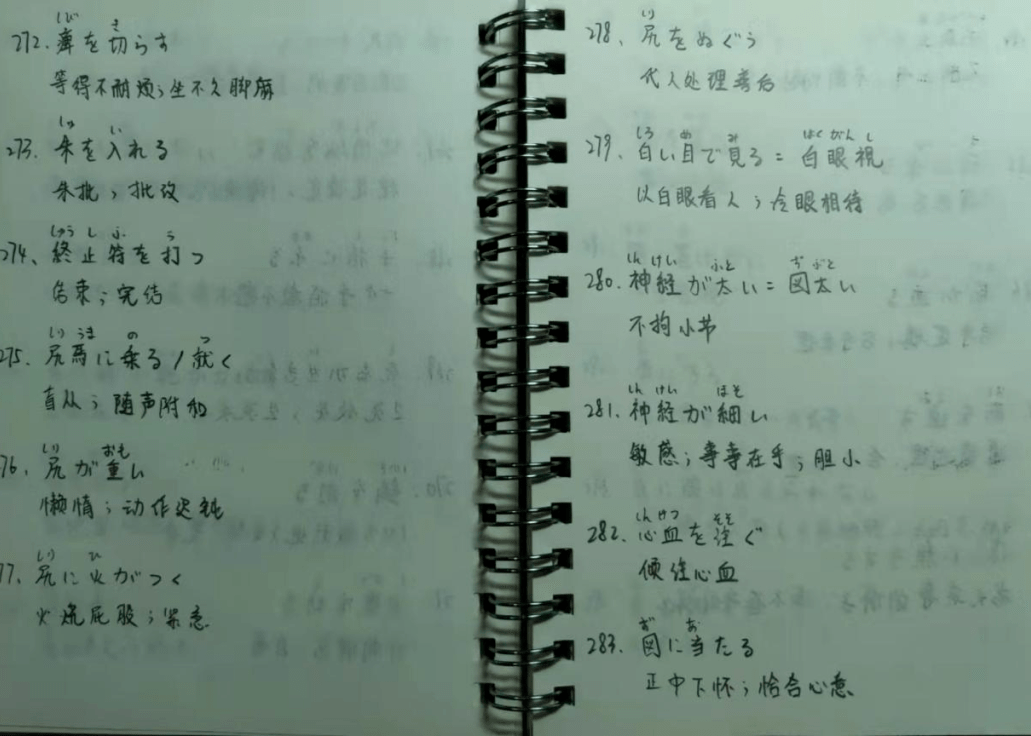 しび き
272. 痺を切らす
等得不耐烦；坐不久脚麻
しゅ い
273. 朱を入れる
朱批，批改
しゅうしふ う
274、終止符を打つ
结束；完结
しりうま の つ
275. 尻馬に乗る/就く
盲从；随声附和
しり おも
76、尻が重い
懒惰；动作迟钝
しり ひ
77. 尻に火がつく
火烧屁股；紧急
しり
278、尻をぬぐう
代人处理善后
しろ め み はくがんし
279. 白い目で見る = 白眼視
以白眼看人；冷眼相待
しんけい ふと ずぶと
280. 神経が太い = 図太い
不拘小节
しんけい ほそ
281. 神経が細い
敏感；事事在乎；胆小
しんけつ そそ
282. 心血を注ぐ
倾注心血
ず あ
283. 図に当たる
正中下怀；恰合心意